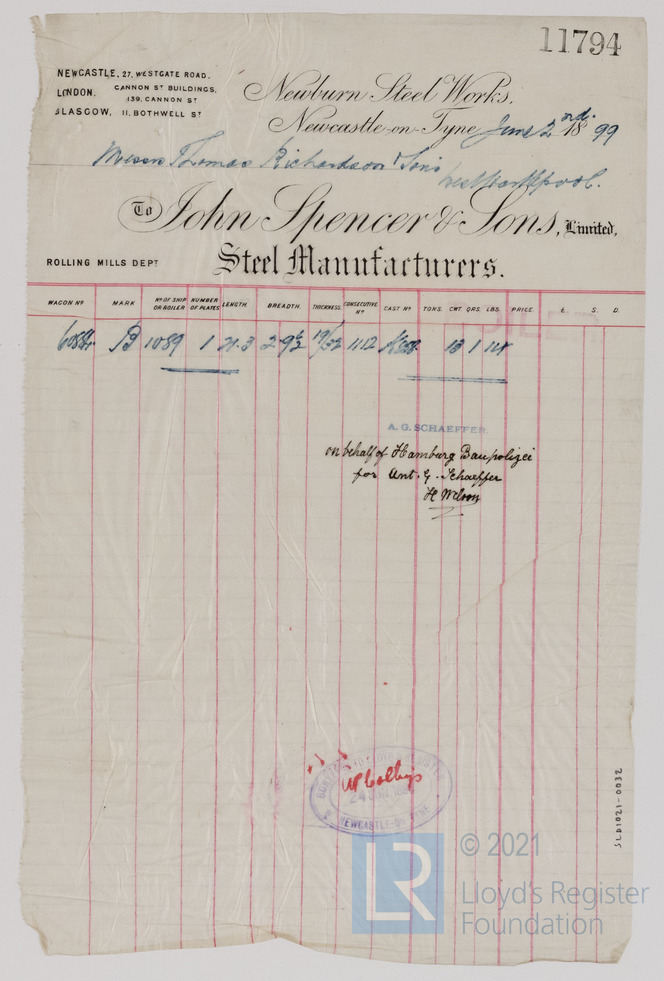 11794
NEWCASTLE, 27, WESTGATE ROAD.
LONDON. CANNON ST BUILDINGS,
139, CANNON ST
GLASGOW, 11, BOTHWELL ST
Newburn Steel Works,
Newcastle-on-Tyne June 2nd. 1899
Messrs Thomas Richardson & Sons
West Hartlepool.
To John Spencer & Sons, Limited,
ROLLING MILLS DEPT
Steel Manufacturers.
WAGON No MARK No OF SHIP OR BOILER NUMBER OF PLATES LENGTH. BREADTH. THICKNESS. CONSECUTIVE No CAST No TONS. CWT QRS. LBS. PRICE £. S. D.
B 1089 1 21.3 2.9½ 19/32 1112 13 1 14
A. G. SCHAEFFER.
on behalf of Hamburg Baupolizei
for Ant. G. Schaeffer
H Wilson
NEWCASTLE-ON-TYNE
SLD1021-0032
LR
© 2021
Lloyd's Register
Foundation